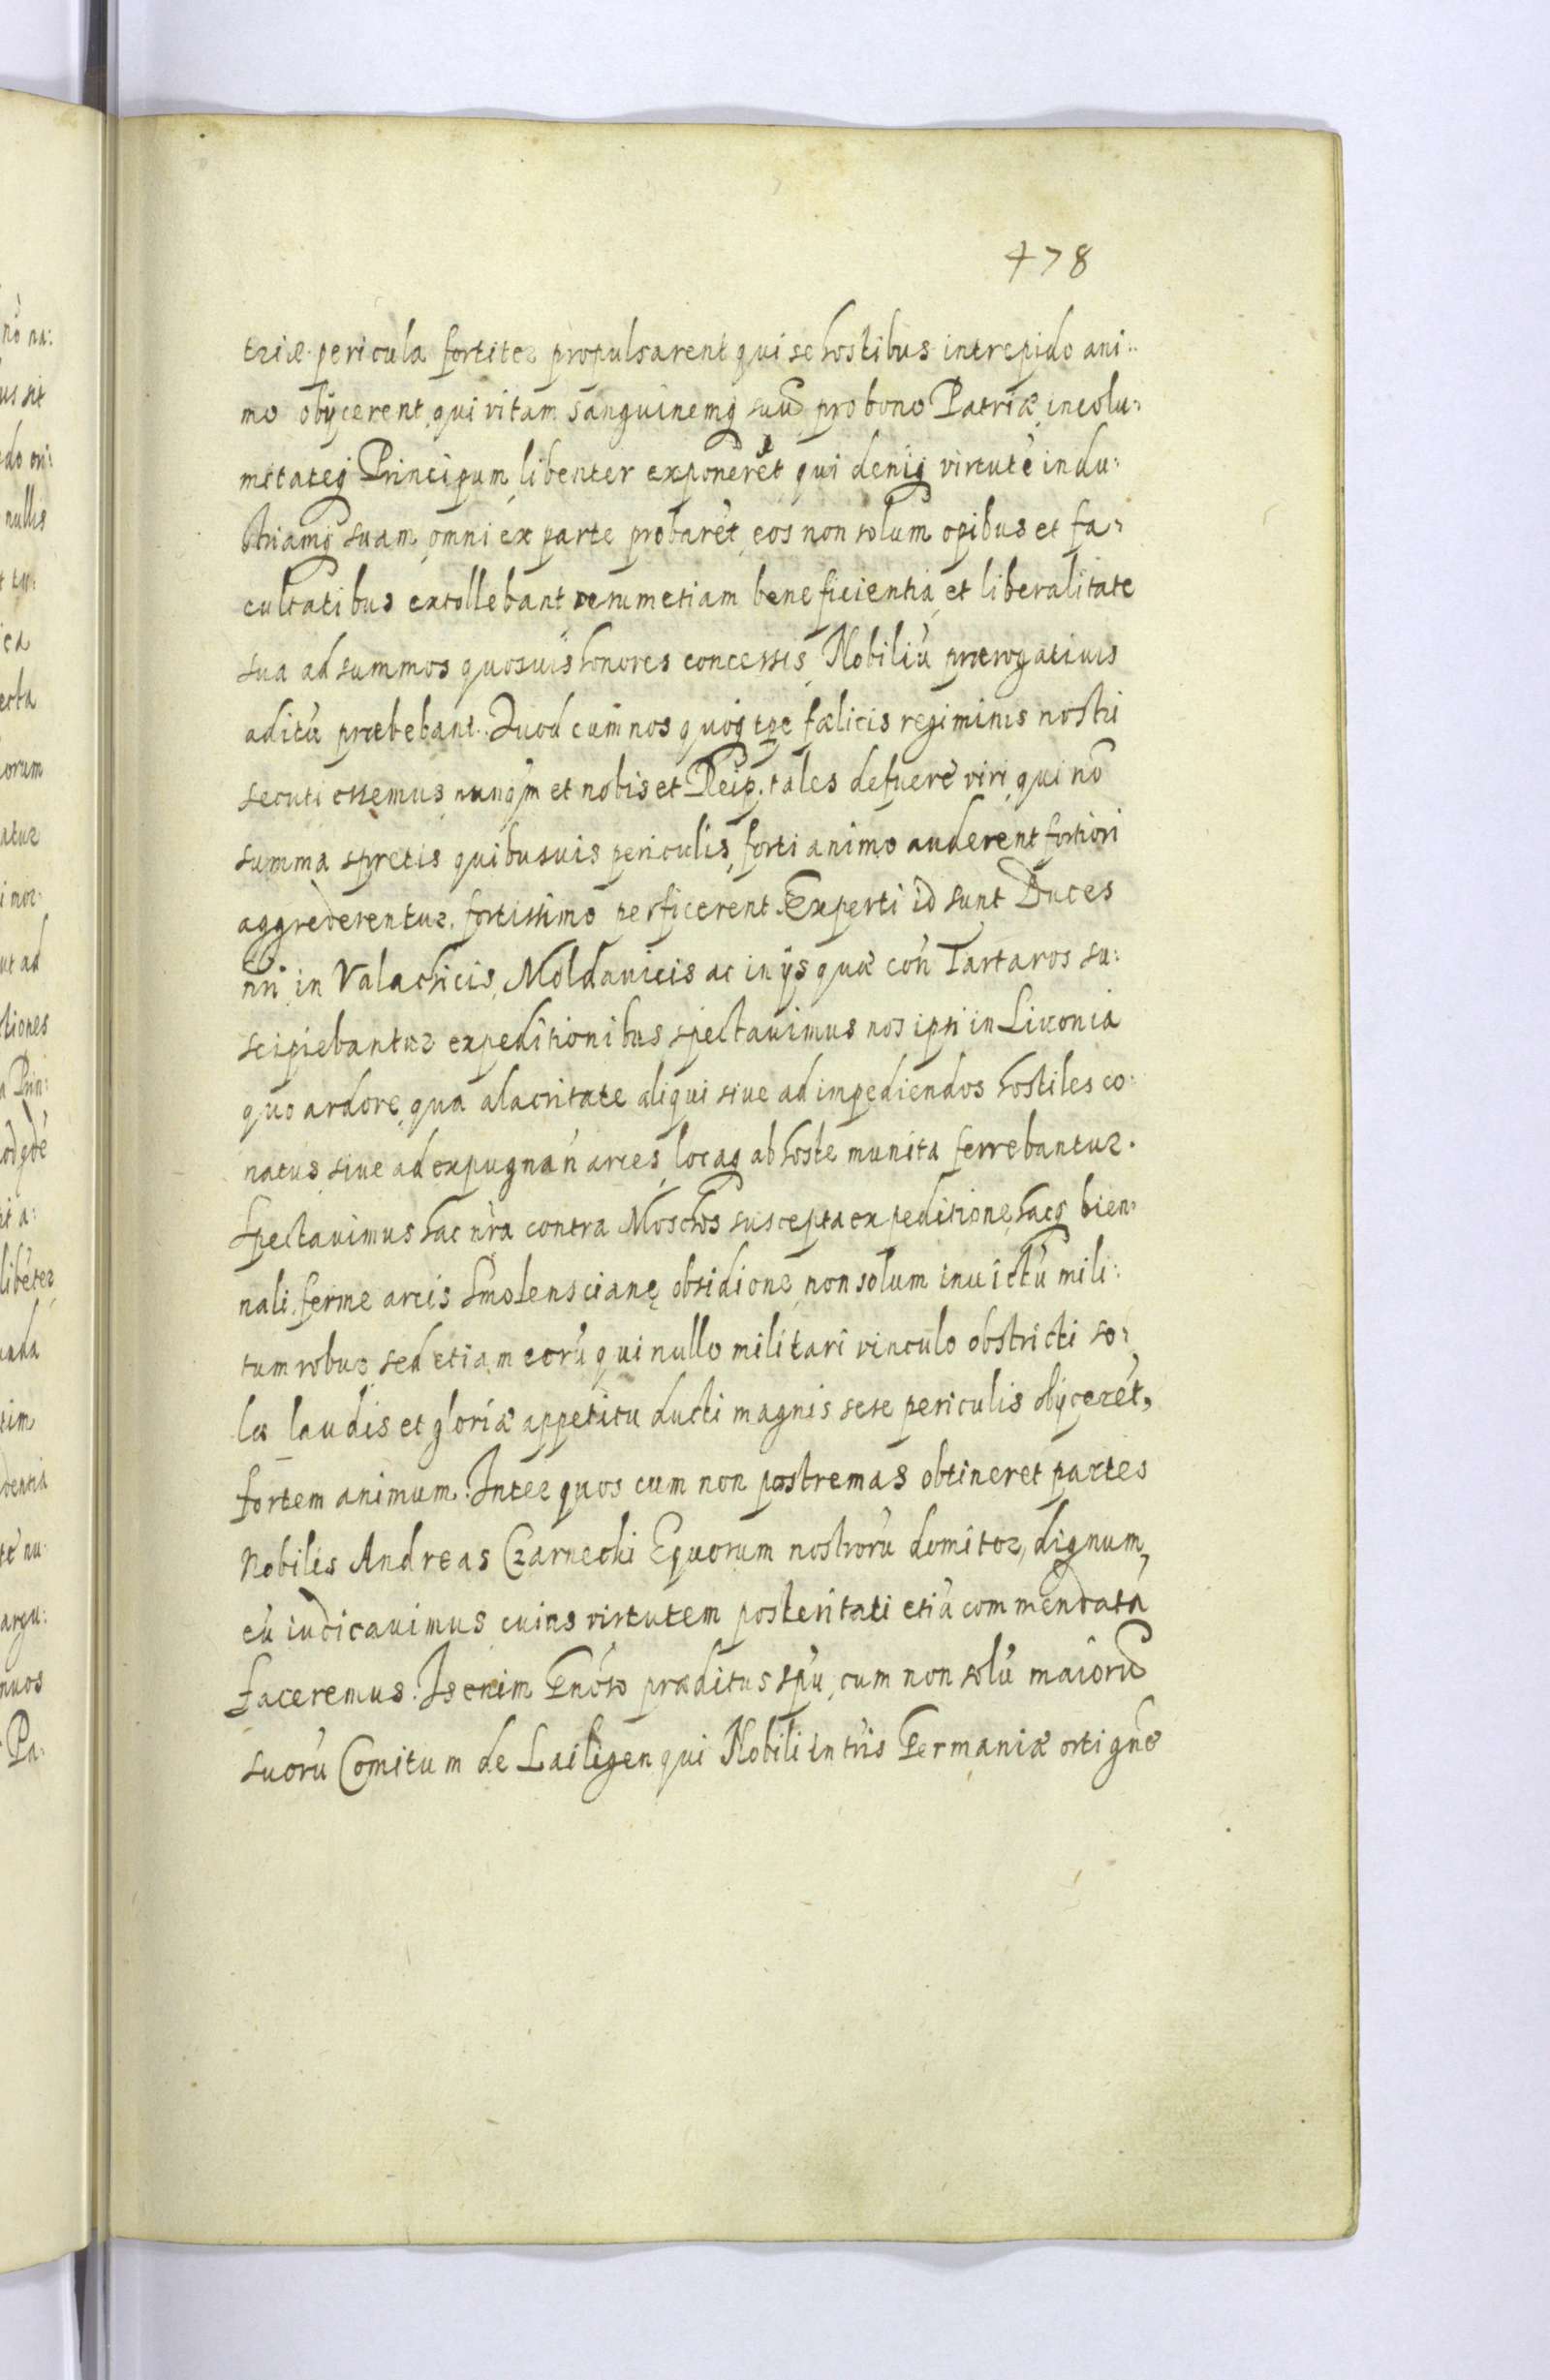 478
triæ pericula fortiter propulsarent qui se hostibus intrepido ani:
mo obijcerent, qui vitam sanguinemq; suũ pro bono Patriæ, incolu:
mitateq; Principum libenter exponerẽt qui deniq; virtutẽ indu:
striamq; suam omni ex parte probarẽt, eos non solum opibus et fa:
cultatibus extollebant verum etiam beneficientia, et liberalitate
sua ad summos quosuis honores concessis Nobiliũ prærogatiuis
aditũ præbebant. Quod cum nos quoq; tpe fælicis regiminis nostri
secuti essemus, nunqm̃ et nobis et Reip. tales defuere viri, qui nõ
summa spretis quibusuis periculis, forti animo auderent fortiori
aggrederentur, fortissimo perficerent. Experti id sunt Duces
nri̇̃ in Valachicis, Moldauicis ac in ijs quæ coñ Tartaros su:
scipiebantur expeditionibus spectauimus nos ipsi in Liuonia
quo ardore, qua alacritate aliqui siue ad impediendos hostiles co:
natus, siue ad expugnañ arces, locaq; ab hoste munita ferrebantur.
Spectauimus hac nr̃a contra Moschos suscepta expeditione, hacq; bien:
nali ferme arcis Smolenscianę obsidione, non solum inuictũ mili:
tum robur, sed etiam eorũ qui nullo militari vinculo obstricti so:
la laudis et gloriæ appetitu ducti magnis sese periculis obijcerẽt,
fortem animum. Inter quos cum non postremas obtineret partes
Nobilis Andreas Czarnecki Equorum nostrorũ domitor, dignum
eũ iudicauimus cuius virtutem posteritati etiã commendatã
faceremus. Is enim Gnõso præditus spũ, cum non solũ maiorũ
suorũ Comitum de Lailigen qui Nobili in trĩs Germaniæ orti gñe